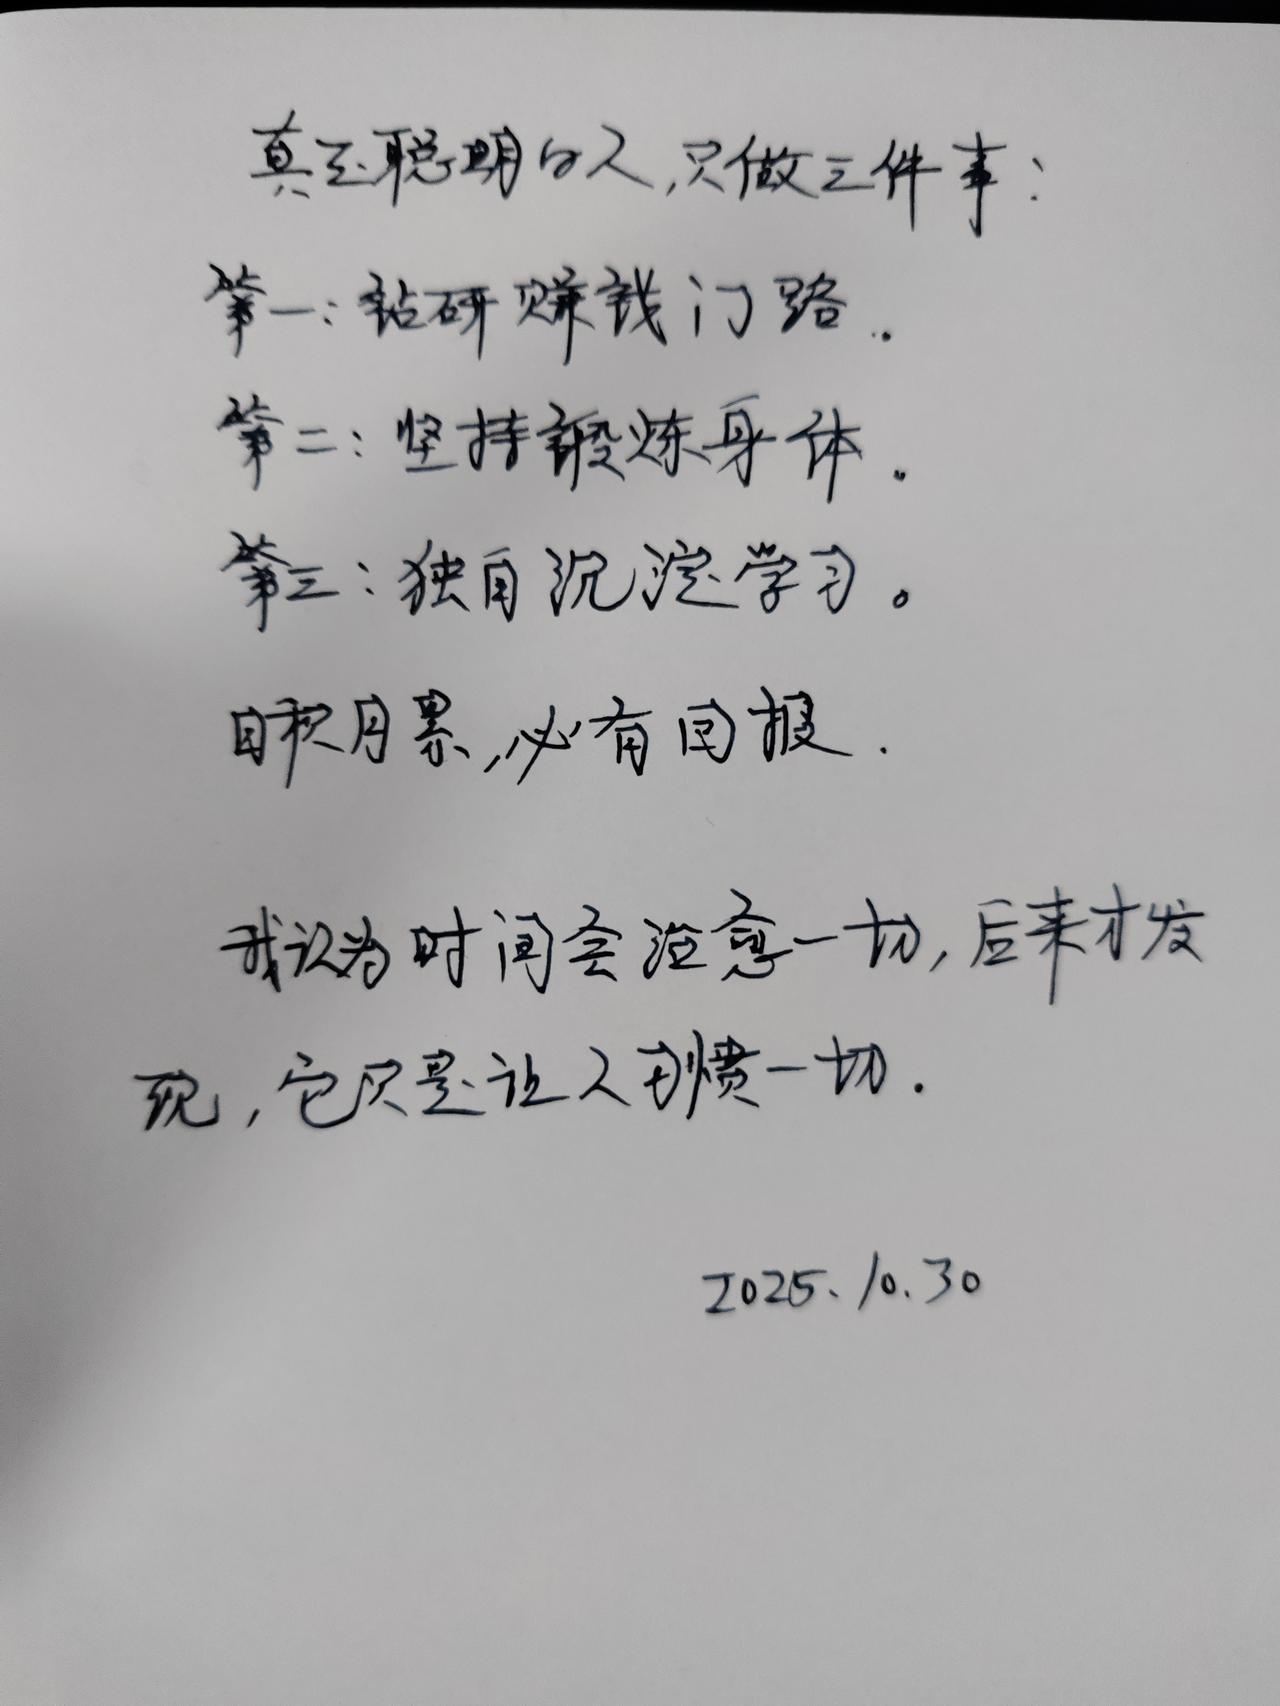 真正聪明的人,只做三件事:
第一:钻研赚钱门路.
第二:坚持锻炼身体.
第三:独自沉淀学习。
日积月累,必有回报.
我认为时间会治愈一切,后来才发
现,它只是让人习惯一切.
2025.10.30